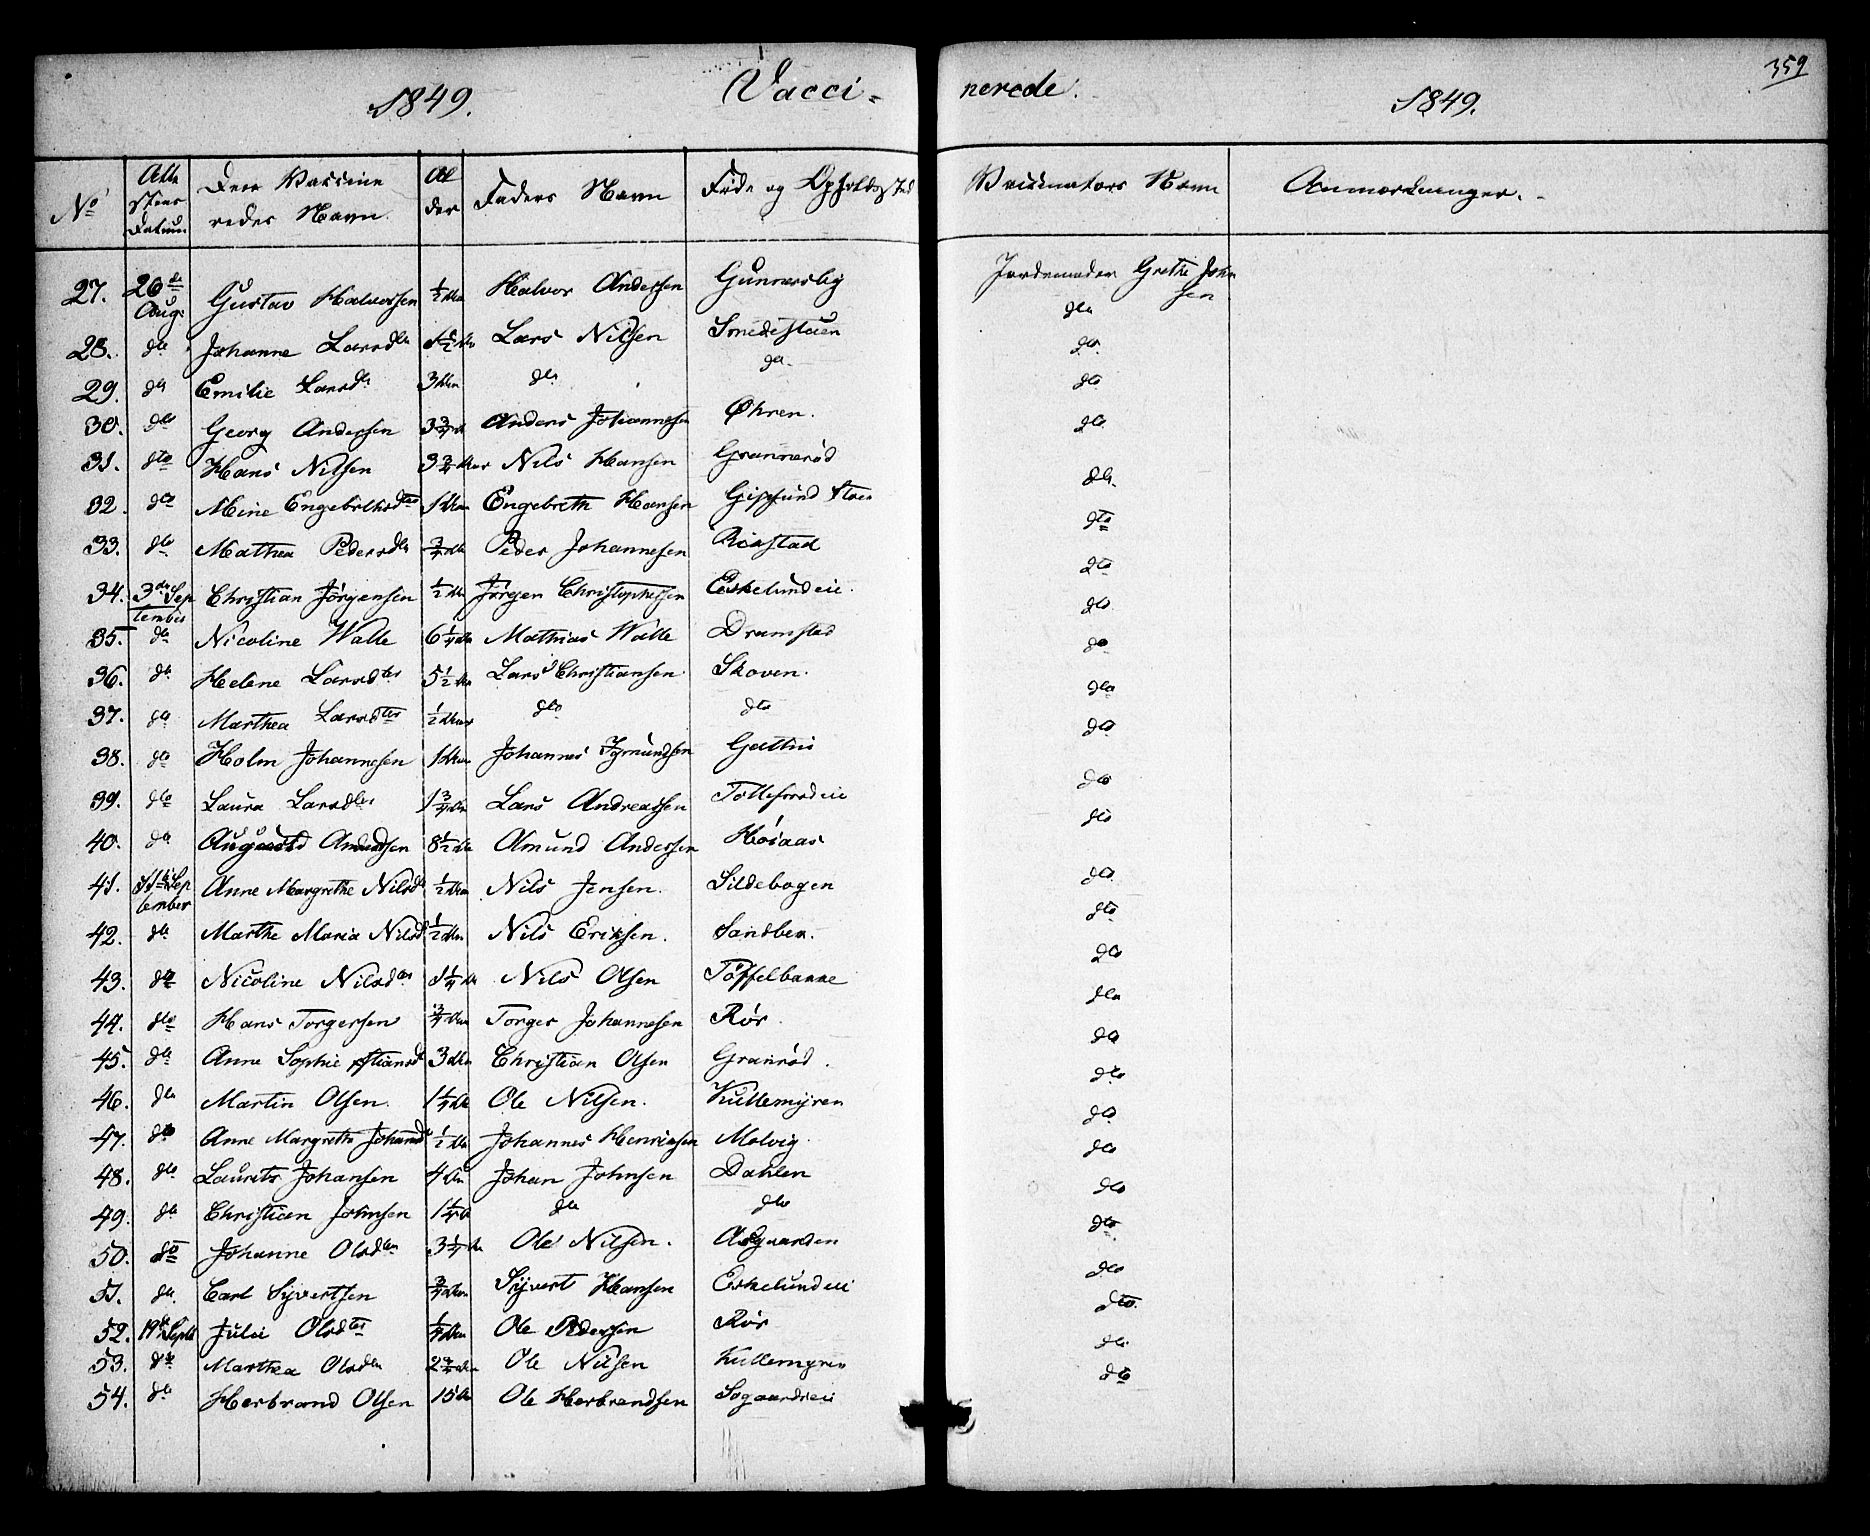 359
1849. Vacci- nerede. 1849.
No | Atte stens Datum | Den Vaccine redes Navn. | Al der | Faders Navn | Føde og Opholdssted | Vaccinators Navn | Anmærkninger.
27. | 26de Aug. | Gustav Halvorsen | 1/2 | Halvor Andersen | Gunnersby | Jordemoder Grethe John sen
28. | do | Johanne Larsdtr | 1 1/2 | Lars Nilsen | Smedestuen | dto
29. | do | Emilie Larsdtr | 3 | dto | do | dto
30. | dto | Georg Andersen | 3 3/4 | Anders Johannesen | Øhren. | dto
31. | dto | Hans Nilsen | 3 3/4 | Nils Hansen | Grannerød | dto
32. | dto | Mine Engebrethsdtr | 1 | Engebreth Hansen | | dto
33. | dto | Mathea Pedersdtr | 3/4 | Peder Johannesen | Riostad | dto
34. | 3die Sep tember | Christian Jörgensen | 1/2 | Jörgen Christophersen | Eskelundeie. | dto
35. | dto | Nicoline Walle | 6 1/4 | Mathias Walle | Dramstad | dto
36. | do | Helene Larsdter | 5 1/2 | Lars Christiansen | Skoven. | do
37. | do | Marthea Larsdter | 1/2 | dto | dto | dto
38. | dto | Holm Johannesen | 1 | Johannes | | dto
39. | dto | Laura Larsdter | 1 3/4 | Lars Andreassen | Tollefsrødeie | dto
40. | do | August Amundsen | 8 1/2 | Amund Andersen | Høiaas | dto
41. | 11te Sep tember | Anne Margrethe Nilsdtr | 1/2 | Nils Jensen. | Sildebogen | dto
42. | do | Marthe Maria Nilsd | 1/2 | Nils Eriksen. | Sandben. | dto
43. | dto | Nicoline Nilsdtr | 1 1/4 | Nils Olsen | Töffelbanne | dto
44. | dto | Hans Torgersen | 3/4 | Torger Johannesen | Rör. | dto
45. | do | Anne Sophie | 3 | Christian Olsen | Granrød. | dto
46. | do | Martin Olsen. | 1 1/4 | Ole Nilsen. | Kullemyren | dto
47. | dto | Anne Margrethe Johansd | 1/2 | Johannes Henriksen | Molvig. | dto
48. | dto | Laurits Johansen | 4 | Johan Johnsen | Dahlen | dto
49. | do | Christian Johnsen | 1 1/4 | do | dto | dto
50. | do | Johanne Olsdtr | 3 1/4 | Ole Nilsen. | Asgaarden | dto
51. | do. | Carl Syvertsen | 3/4 | Syvert Hansen | Eskelundeie | dto
52. | 19de Septb | Julie Olsdter | 1/4 | Ole Pedersen | Rör | dto.
53. | do | Marthea Olsdtr | 2 3/4 | Ole Nilsen | Kullemyren | do.
54. | do | Herbrand Olsen | 15 | Ole Herbrandsen | Sogaardseie | dto